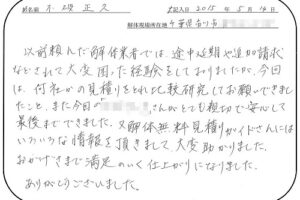 氏名 不破 正久 記入日 2015年5月14日
解体現場所在地 千葉県市川市
以前頼んだ解体業者では、途中延期や追加請求
などされて大変困った経験をしておりましたが、今回
は、何社かの見積りをとれ比較研究してお願いできまし
たこと、また今回の さんがとても親切で安心して
最後までできました。又解体無料見積りガイドさんには
いろいろな情報を頂きまして大変助かりました。
おかげさまで満足のいく仕上がりになりました。
ありがとうございました。